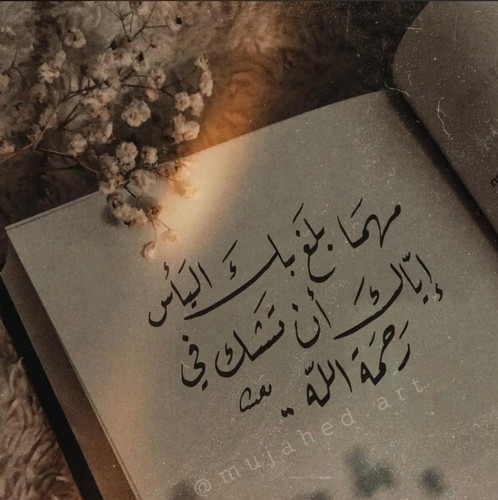 مهمَا بلَغ بكَ اليَأس
إيّاكَ أن تَشك في
رَحمَة اللّه ..
@mujahed art